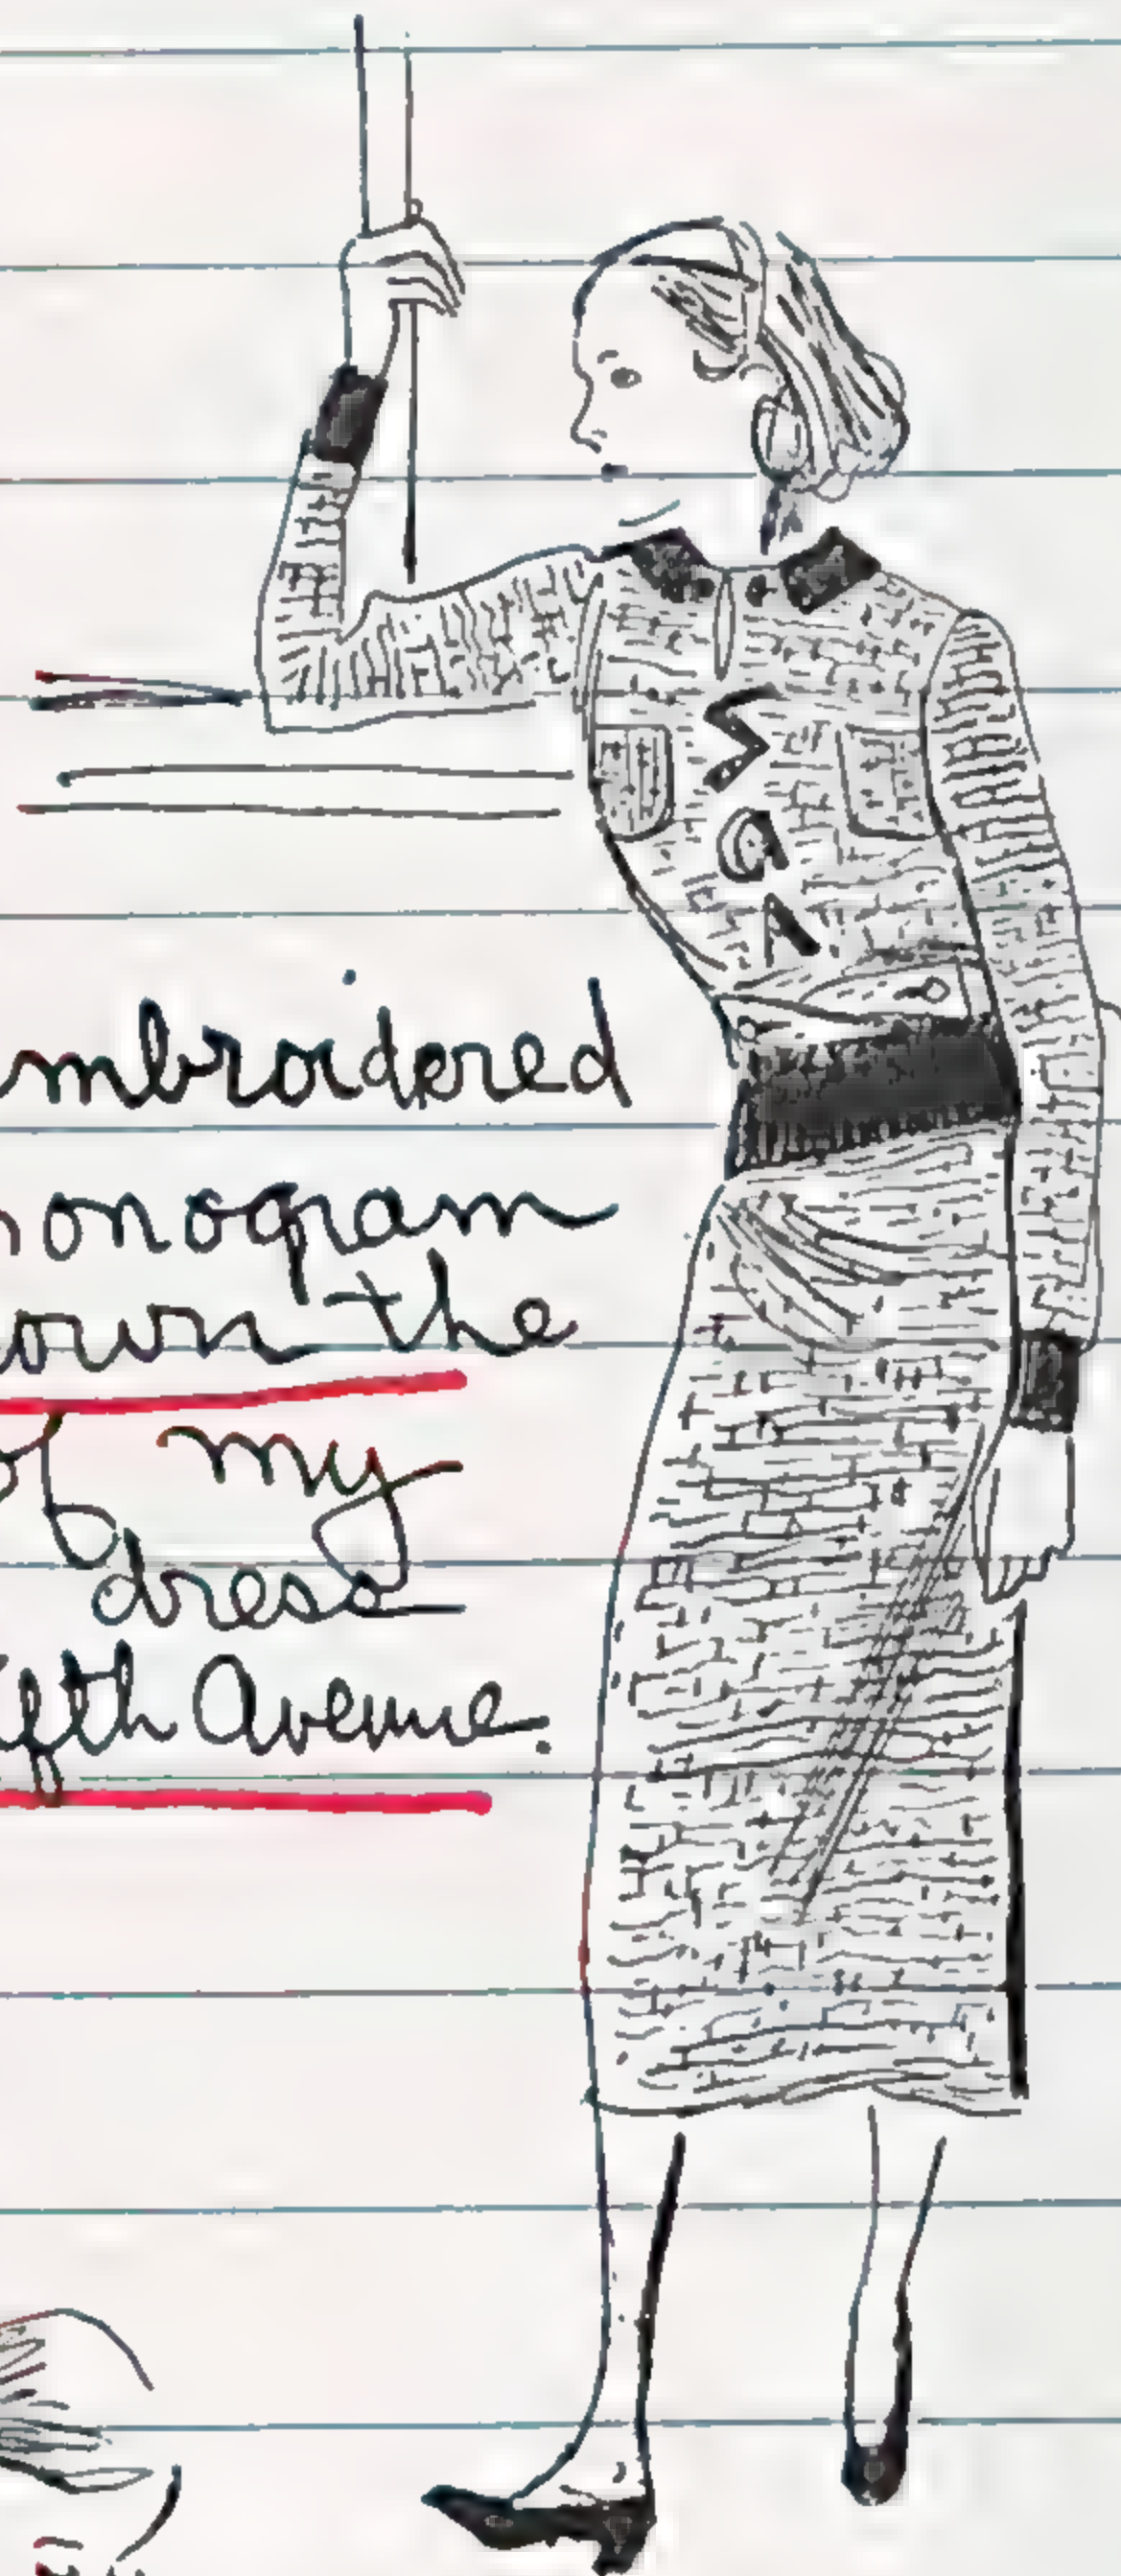 mbroidered
onogram
own the
of my
dress
fth Avenue.